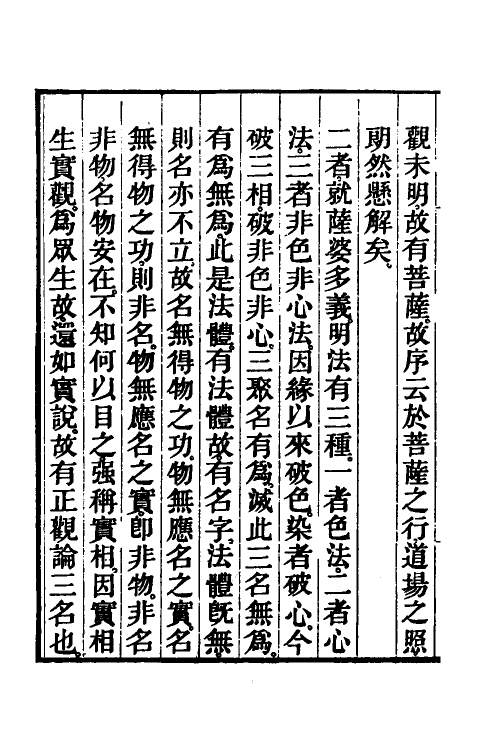 觀未明。故有菩薩。故序云於菩薩之行。道場之照。
朗然懸解矣。
二者就薩婆多義。明法有三種。一者色法。二者心
法。三者非色非心法。因緣以來破色。染者破心。今
破三相。破非色非心。三聚名有爲。滅此三名無爲。
有爲無爲。此是法體。有法體故。有名字。法體旣無。
則名亦不立。故名無得物之功。物無應名之實。名
無得物之功。則非名。物無應名之實。卽非物。非名
非物。名物安在。不知何以目之。强稱實相。因實相
生實觀。爲眾生故。還如實說。故有正觀論三名也。